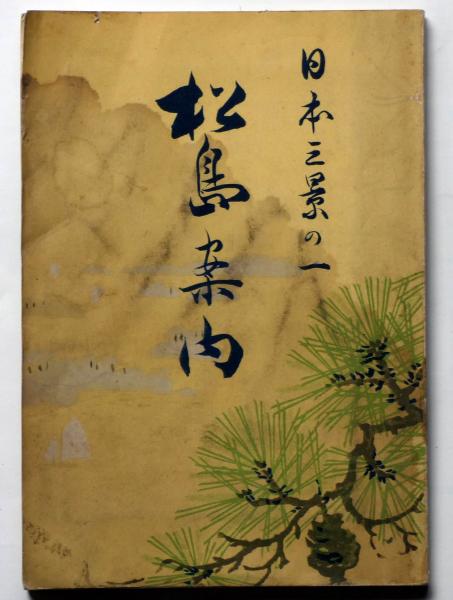 日本三景の一
松島案内